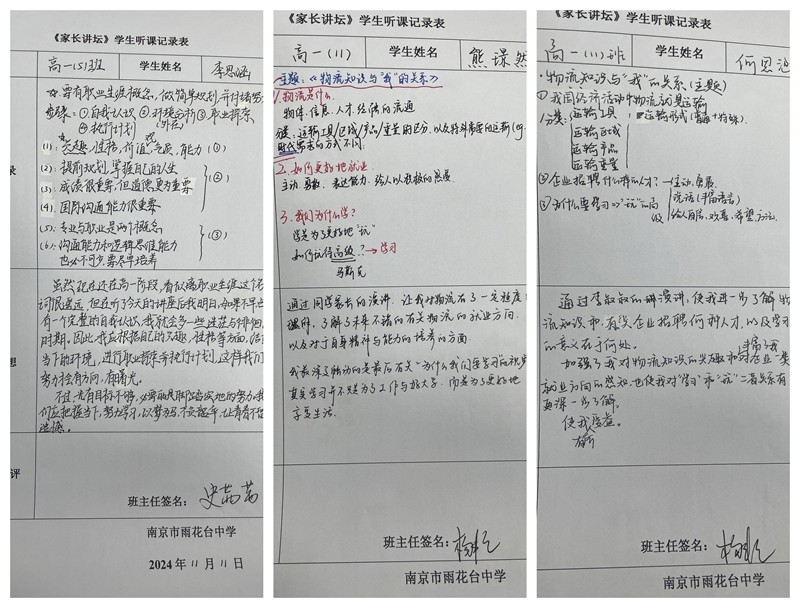 《家长讲坛》学生听课记录表
高一(5)班
学生姓名
李思涵
要有职业生涯概念，做简单规划，并付诸努
步骤：①自我认识 ②环境分析 ③职业探索
(外在)
④执行计划
(1)：兴趣、性格、价值、气质、能力 (①)
(2)：提前规划，掌握自己的人生
(3)：成绩很重要，但道德更为重要
(②)
(4)：国际沟通能力很重要
(5)：专业与职业是两个概念
(6)：沟通能力和逻辑思维能力
(③)
也必不可少，要尽早培养
录
虽然现在还在高一阶段，看似离职业生涯这个名
词很遥远，但在听了今天的讲座后我明白，如果不早些
有一个完整的自我认识，我就会多一些迷茫与徘徊
时期。因此，我应根据自己的兴趣、性格等方面，结合
当下的环境，进行职业探索并执行计划，这样我们
努力才会有方向，有曙光。
不过，光有目标不够，必要的是脚踏实地的努力，我
们应把握当下，努力学习，以梦为马，不负韶华，让青春不留
遗憾。
想
评
班主任签名：
南京市雨花台中学
2024年11月11日
《家长讲坛》学生听课记录表
高一(11)
学生姓名
熊璟然
主题：《物流知识与"我"的关系》
1.物流是什么
物体、信息、人才、经修的流通
分类：运输工具/区域/产品/重量的区分，以及特殊需要的运输(eg.
时代需求的方式不同)
2.如何更好地就业
主动、勇敢、表达能力、给人以积极的感展
3.我们为什么学？
学是为了更好地"玩"
如何玩得高级？→学习
马斯克
通过同学家长的演讲，让我对物流有了一定程度
理解，了解了未来不错的有关物流的就业方向，
以及对于自身精神与能力的培养的方面。
我最深受触动的是最后有关"为什么我们要学习的视频
其实学习并不只是为了工作与挣大学，而是为了更好地
享受生活。
班主任签名：
南京市雨花台中学
《家长讲坛》学生听课记录表
高一(11)班
学生姓名
何思
·物流知识与"我"的关系(主题)
①我国经济活动中物流就是运输
分类：运输工具
运输形式(普通+特殊)
运输区域
运输产品
运输重量
②企业招聘什么样的人才？
③为什么要学习
给人自信、欢喜、希望、方法
通过李叔叔的演讲，使我进一步了解物
流知识和有关企业招聘何种人才，以及学习
的意义在于何处。
加强了我对物流知识的兴趣和
就业方向的感知，也使我对"学习"和"玩"二者关系有
更深一步了解。
使我受益。
班主任签名：
南京市雨花台中学